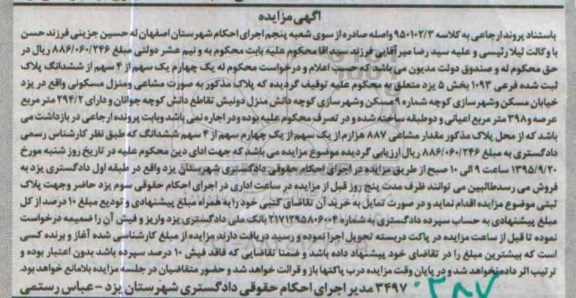 آگهی مزایده
باستناد پرونده ارجاعی به کلاسه 950102/3 واصله صادره از سوی شعبه پنجم اجرای احکام شهرستان اصفهان له حسین جزینی فرزند حسن
با وکالت لیلا رئیسی و علیه سید رضا میرآقایی فرزند سید آقا محکوم علیه بابت محکوم به و نیم عشر دولتی مبلغ 886/060/246 ریال در
حق محکوم له و صندوق دولت مدیون می باشد که حسب اعلام و درخواست محکوم له یک چهارم یک سهم از 4 سهم از ششدانگ پلاک
ثبت شده فرعی 1093 بخش 5 یزد متعلق به محکوم علیه توقیف گردیده که پلاک مذکور به صورت مشاعی ومنزل مسکونی واقع در یزد
خیابان مسکن وشهرسازی کوچه شماره 9 مسکن وشهرسازی کوچه دانش منزل دونبش تقاطع دانش کوچه جوانان و دارای 294/2 متر مربع
عرصه و398 متر مربع اعیانی و دوطبقه ساخته شده و در تصرف محکوم علیه بوده ودر اجاره نمی باشد وبابت پرونده ارجاعی در بازداشت می
باشد که از محل پلاک مذکور مقدار مشاعی 887 هزارم از یک سهم از یک چهارم سهم از 4 سهم ششدانگ که طبق نظر کارشناس رسمی
دادگستری به مبلغ 886/060/246 ریال ارزیابی گردیده موضوع مزایده می باشد که جهت ادای دین محکوم علیه در تاریخ روز شنبه مورخ
1395/9/20 ساعت 9 الی 10 صبح از طریق مزایده در اجرای احکام حقوقی دادگستری شهرستان یزد واقع در طبقه اول دادگستری یزد به
فروش می رسدطالبین می توانند ظرف مدت پنج روز قبل از مزایده در ساعت اداری در اجرای احکام حقوقی سوم یزد حاضر وجهت پلاک
ثبتی موضوع مزایده اقدام نماید و در صورت تمایل به خرید آن تقاضای کتبی خود را به همراه مبلغ پیشنهادی و تودیع مبلغ 10 درصد از کل
مبلغ پیشنهادی به حساب سپرده دادگستری به شماره 2171295806004 بانک ملی دادگستری یزد واریز و فیش آن را ضمیمه درخواست
نموده تا قبل از ساعت مزایده در پاکت دربسته تحویل اجرا نموده و رسید دریافت دارند مزایده از مبلغ کارشناسی شده آغاز و برنده کسی
است که بیشترین مبلغ را در تقاضای خود پیشنهاد داده باشد و ضمنا تقاضایی که فاقد فیش 10 درصد سپرده باشد بدون اعتبار بوده و
ترتیب اثر داده نخواهد شد و در پایان وقت مزایده درب پاکتها باز و قرائت خواهد شد و حضور متقاضیان در جلسه مزایده بلامانع خواهد بود.
3497 مدیر اجرای احکام حقوقی دادگستری شهرستان یزد - عباس رستمی